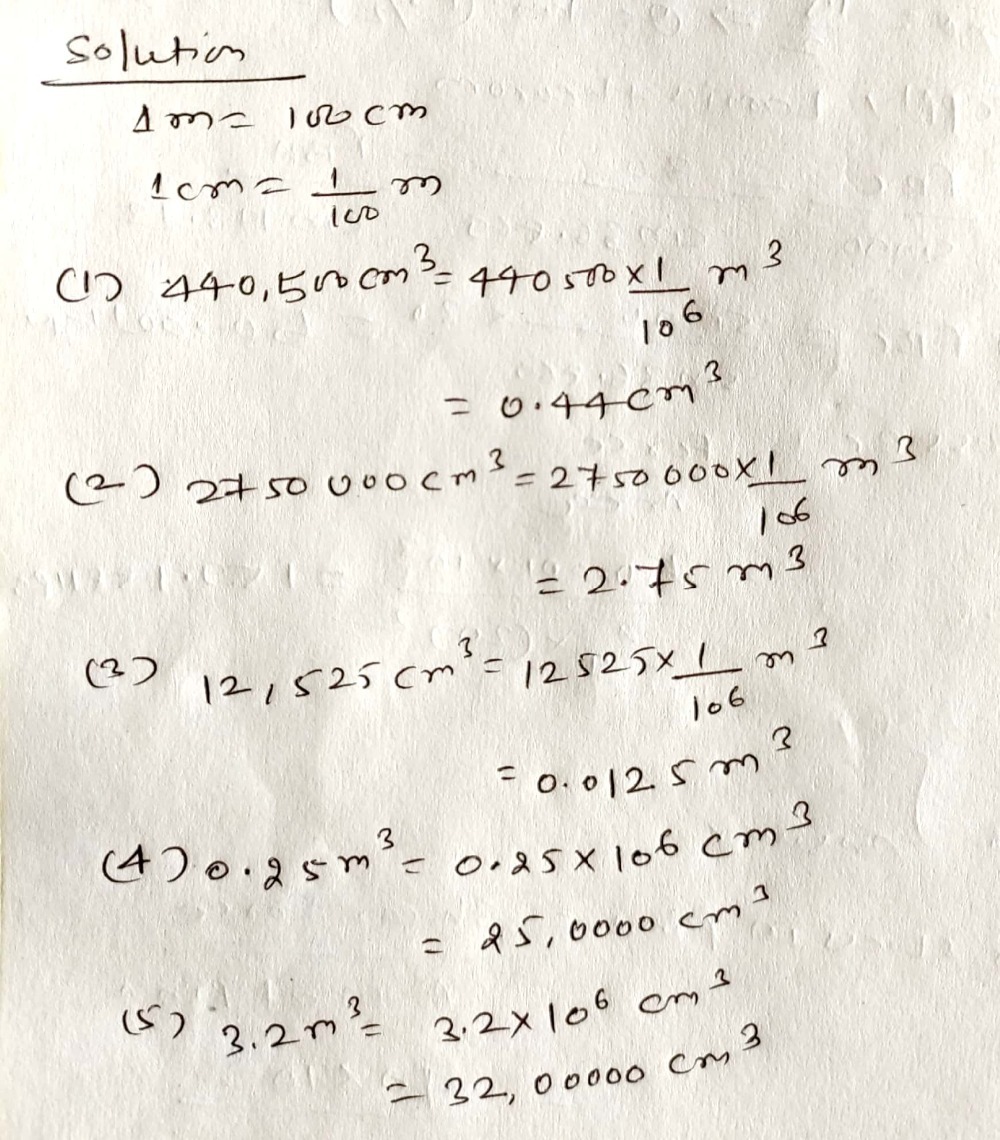 Solution
1m = 100 cm
1cm = 1/100 m
(1) 440,500 cm³ = 440500 × 1/10⁶ m³
= 0.44 cm³
(2) 2750 000 cm³ = 2750 000 × 1/106 m³
= 2.75 m³
(3) 12,525 cm³ = 12525 × 1/106 m³
= 0.0125 m³
(4) 0.25 m³ = 0.25 × 106 cm³
= 25,0000 cm³
(5) 3.2 m³ = 3.2 × 10⁶ cm³
= 32,00000 cm³